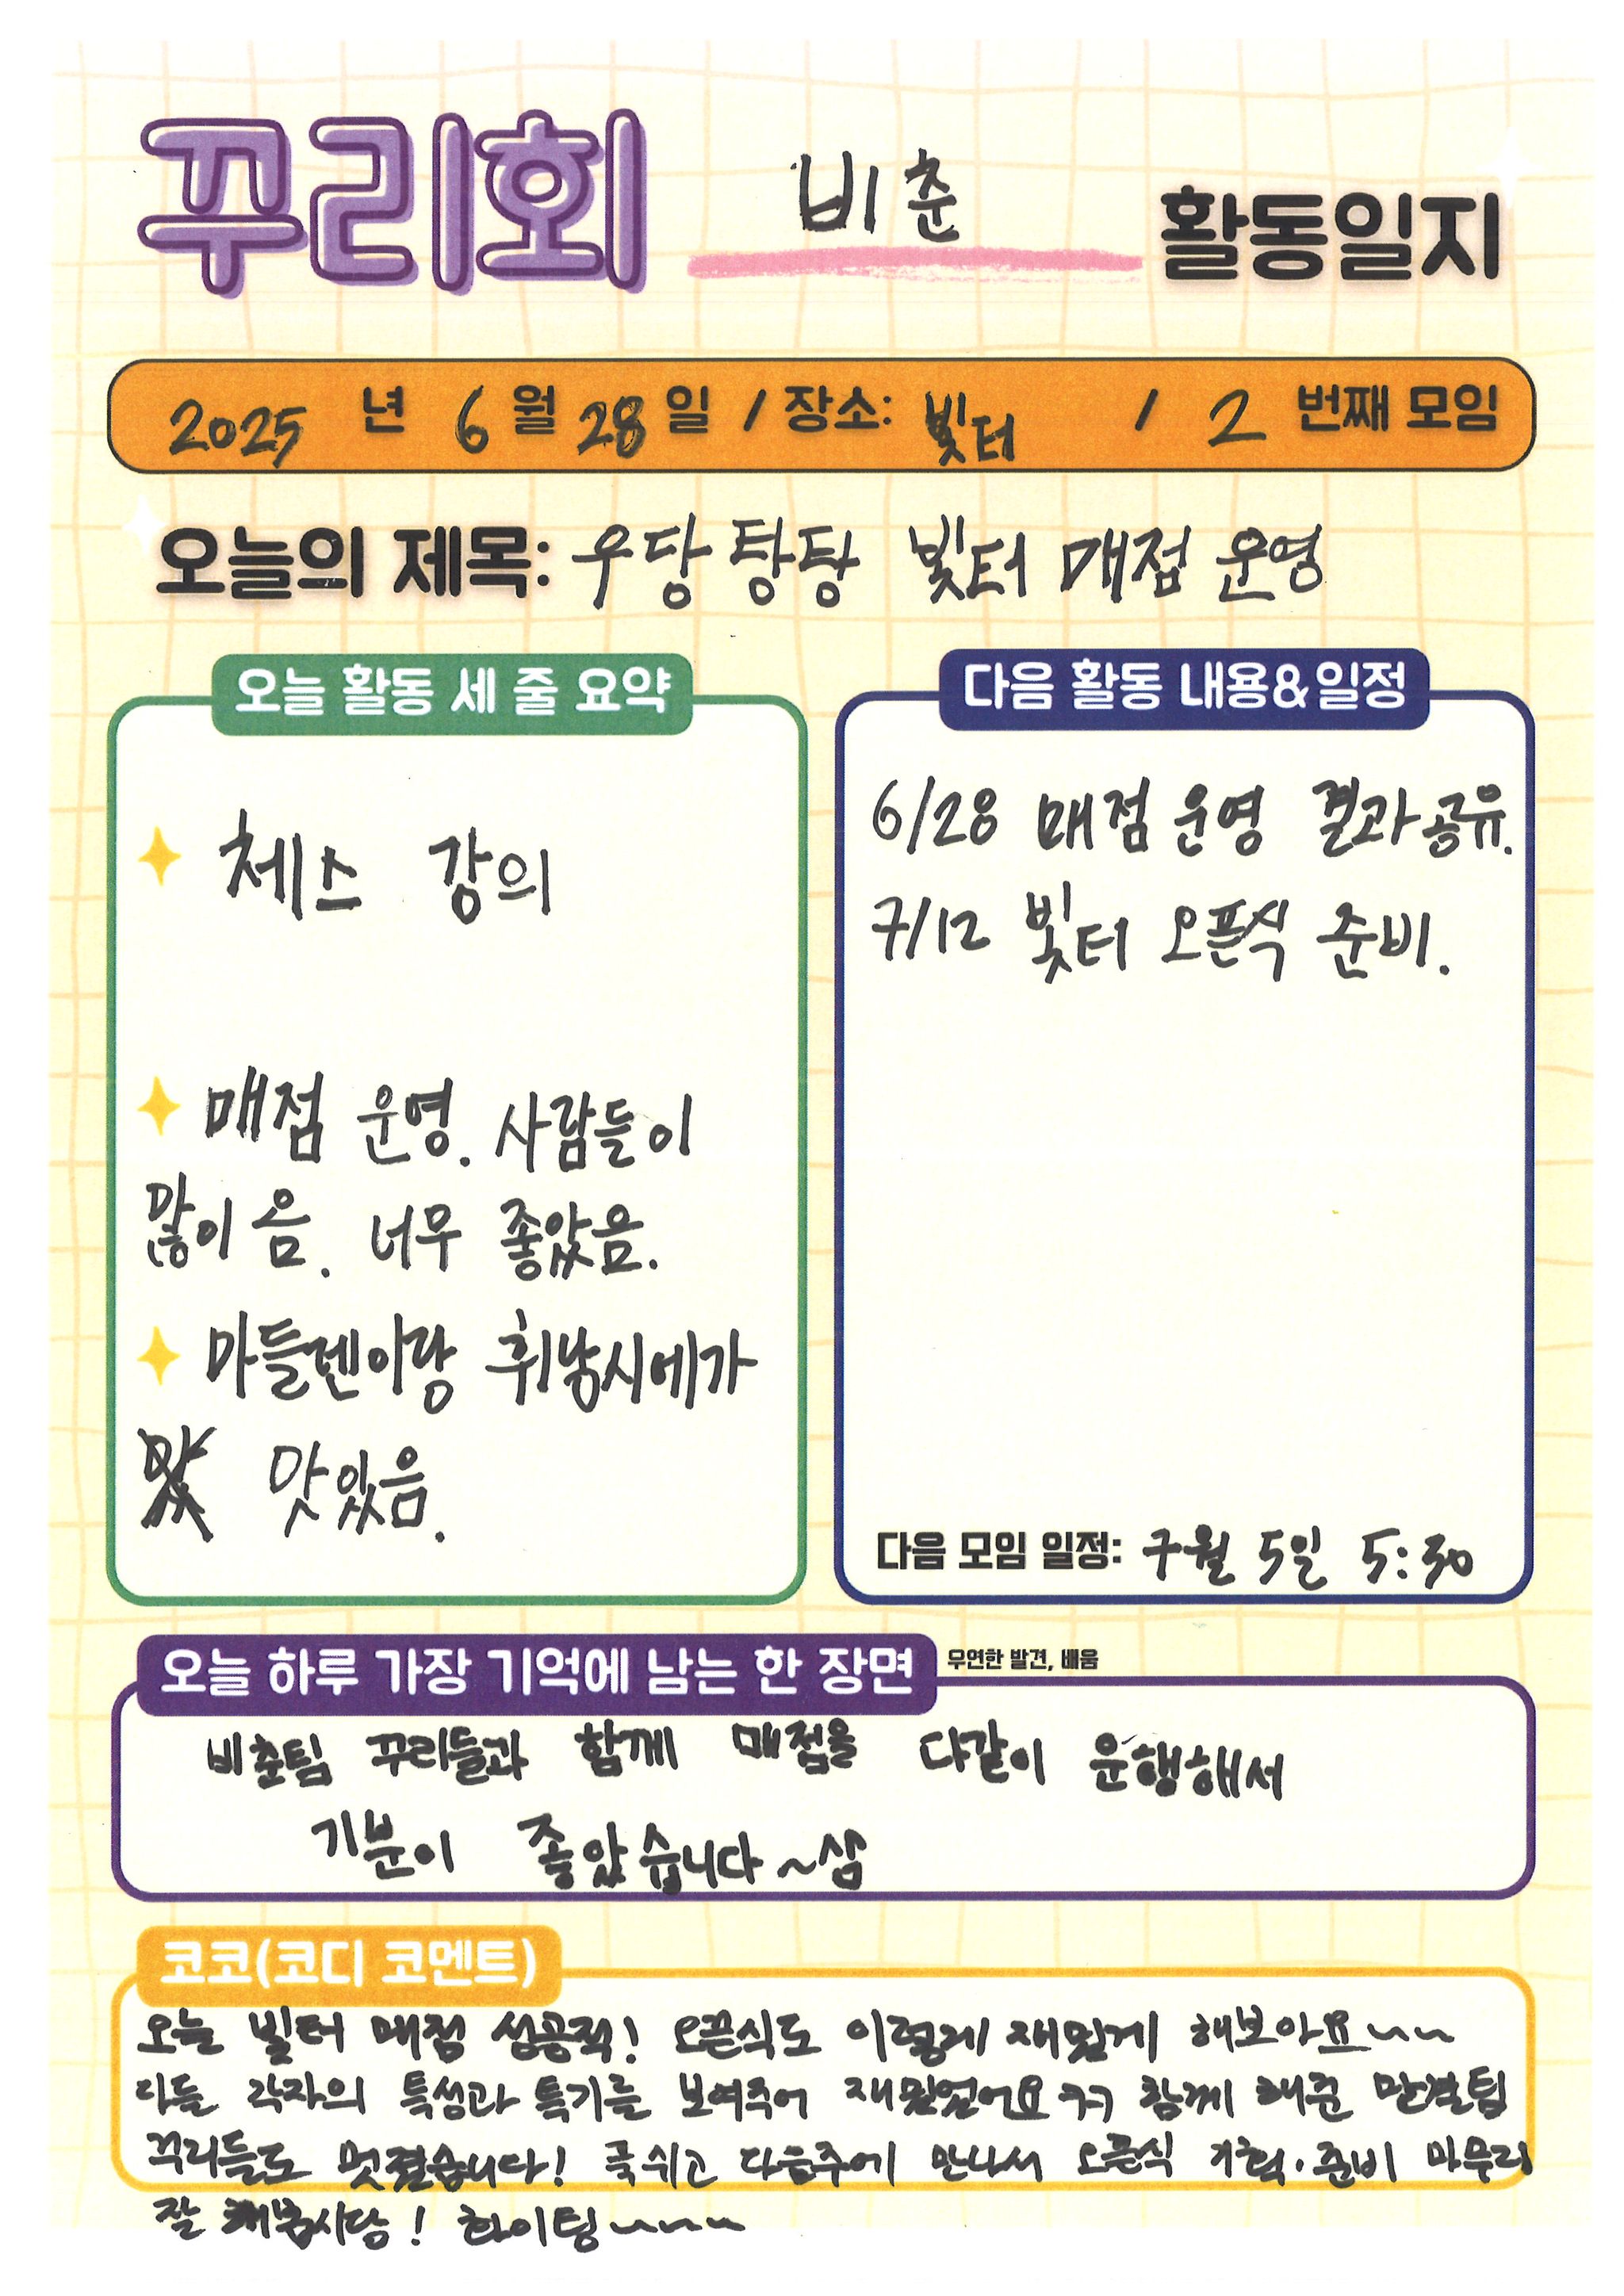 꾸리회 비춘 활동일지
2025 년 6 월 28 일 / 장소: 빛터 / 2 번째 모임
오늘의 제목: 우당탕탕 빛터 매점 운영
오늘 활동 세 줄 요약
체스 강의
매점 운영. 사람들이
많이 옴. 너무 좋았음.
마들렌이랑 휘낭시에가
맛있음.
다음 활동 내용&일정
6/28 매점 운영 결과공유.
7/12 빛터 오픈식 준비.
다음 모임 일정: 7월 5일 5:30
오늘 하루 가장 기억에 남는 한 장면 우연한 발견, 배움
비춘팀 꾸리들과 함께 매점을 다같이 운행해서
기분이 좋았습니다~삼
코코(코디 코멘트)
오늘 빛터 매점 성공적! 오픈식도 이렇게 재밌게 해보아요~~
다들 각자의 특성과 특기를 보여주어 재밌었어요 ㅋㅋ 함께 해준 팀
꾸리들도 멋졌습니다! 푹쉬고 다음주에 만나서 오픈식 기획·준비 마무리
잘 해봅시당! 화이팅~~~~